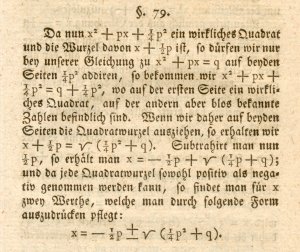 §. 79.
Da nun x² + px + ¼p² ein wirkliches Quadrat
und die Wurzel davon x + ½p ist, so dürfen wir nur
bey unserer Gleichung zu x² + px = q auf beyden
Seiten ¼p² addiren, so bekommen wir x² + px +
¼p² = q + ¼p², wo auf der ersten Seite ein wirkli-
ches Quadrat, auf der andern aber blos bekannte
Zahlen befindlich sind. Wenn wir daher auf beyden
Seiten die Quadratwurzel ausziehen, so erhalten wir
x + ½p = √(¼p² + q). Subtrahirt man nun
½p, so erhält man x = — ½p + √(¼p² + q);
und da jede Quadratwurzel sowohl positiv als nega-
tiv genommen werden kann, so findet man für x
zwey Werthe, welche man durch folgende Form
auszudrücken pflegt:
x = — ½p ± √(¼p² + q).